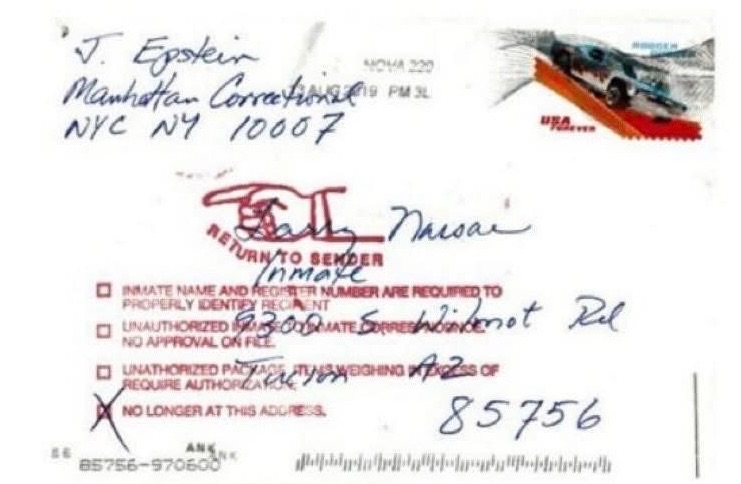 J. Epstein
NOVA 220
Manhattan Correctional
13 AUG 2019 PM 3L
NYC NY 10007
USA
FOREVER
Larry Nassar
RETURN TO SENDER
Inmate
INMATE NAME AND REGISTER NUMBER ARE REQUIRED TO
PROPERLY IDENTIFY RECIPIENT
9300 S. Wilmot Rd
UNAUTHORIZED INMATE TO INMATE CORRESPONDENCE.
NO APPROVAL ON FILE.
Tucson AZ
UNATHORIZED PACKAGE, ITEMS WEIGHING EXCESS OF
REQUIRE AUTHORIZATION.
NO LONGER AT THIS ADDRESS.
85756
ANK
ANK
86
85756-970600